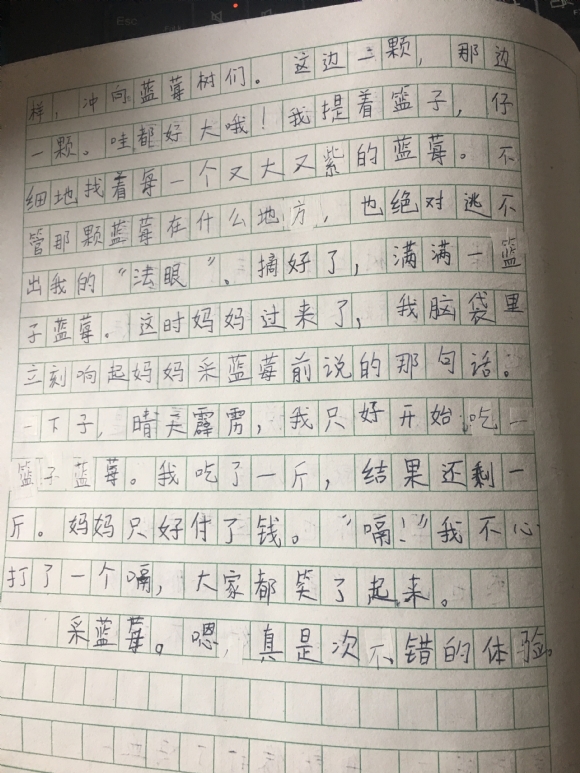 样，冲向蓝莓树们。这边三颗，那边
一颗。哇都好大哦！我提着篮子，仔
细地找着每一个又大又紫的蓝莓。不
管那颗蓝莓在什么地方，也绝对逃不
出我的“法眼”。摘好了，满满一篮
子蓝莓。这时妈妈过来了，我脑袋里
立刻响起妈妈采蓝莓前说的那句话。
一下子，晴天霹雳，我只好开始吃一
篮子蓝莓。我吃了一斤，结果还剩一
斤。妈妈只好付了钱。“嗝！”我不心
打了一个嗝，大家都笑了起来。
采蓝莓。嗯，真是次不错的体验。